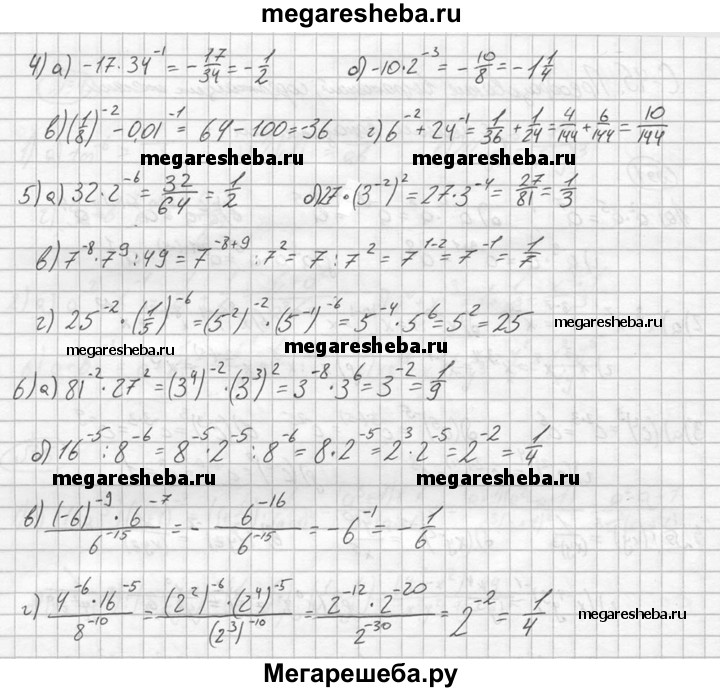 megaresheba.ru
4) а) -17·34⁻¹ = -17/34 = -1/2 б) -10·2⁻³ = -10/8 = -1 1/4
в) (1/8)⁻² - 0,01⁻¹ = 64 - 100 = -36 г) 6⁻² + 24⁻¹ = 1/36 + 1/24 = 4/144 + 6/144 = 10/144
megaresheba.ru megaresheba.ru
5) а) 32·2⁻⁶ = 32/64 = 1/2 б) 27·(3⁻²)² = 27·3⁻⁴ = 27/81 = 1/3
в) 7⁻⁸·7⁹:49 = 7⁻⁸⁺⁹:7² = 7:7² = 7¹⁻² = 7⁻¹ = 1/7
г) 25⁻²·(1/5)⁻⁶ = (5²)⁻²·(5⁻¹)⁻⁶ = 5⁻⁴·5⁶ = 5² = 25 megaresheba.ru
megaresheba.ru megaresheba.ru
6) а) 81⁻²·27² = (3⁴)⁻²·(3³)² = 3⁻⁸·3⁶ = 3⁻² = 1/9
б) 16⁻⁵:8⁻⁶ = 8⁻⁵·2⁻⁵:8⁻⁶ = 8·2⁻⁵ = 2³·2⁻⁵ = 2⁻² = 1/4
megaresheba.ru megaresheba.ru
в) (-6)⁻⁹·6⁻⁷/6⁻¹⁵ = - 6⁻¹⁶/6⁻¹⁵ = -6⁻¹ = -1/6
г) 4⁻⁶·16⁻⁵/8⁻¹⁰ = (2²)⁻⁶·(2⁴)⁻⁵/(2³)⁻¹⁰ = 2⁻¹²·2⁻²⁰/2⁻³⁰ = 2⁻² = 1/4 megaresheba.ru
Мегарешеба.ру